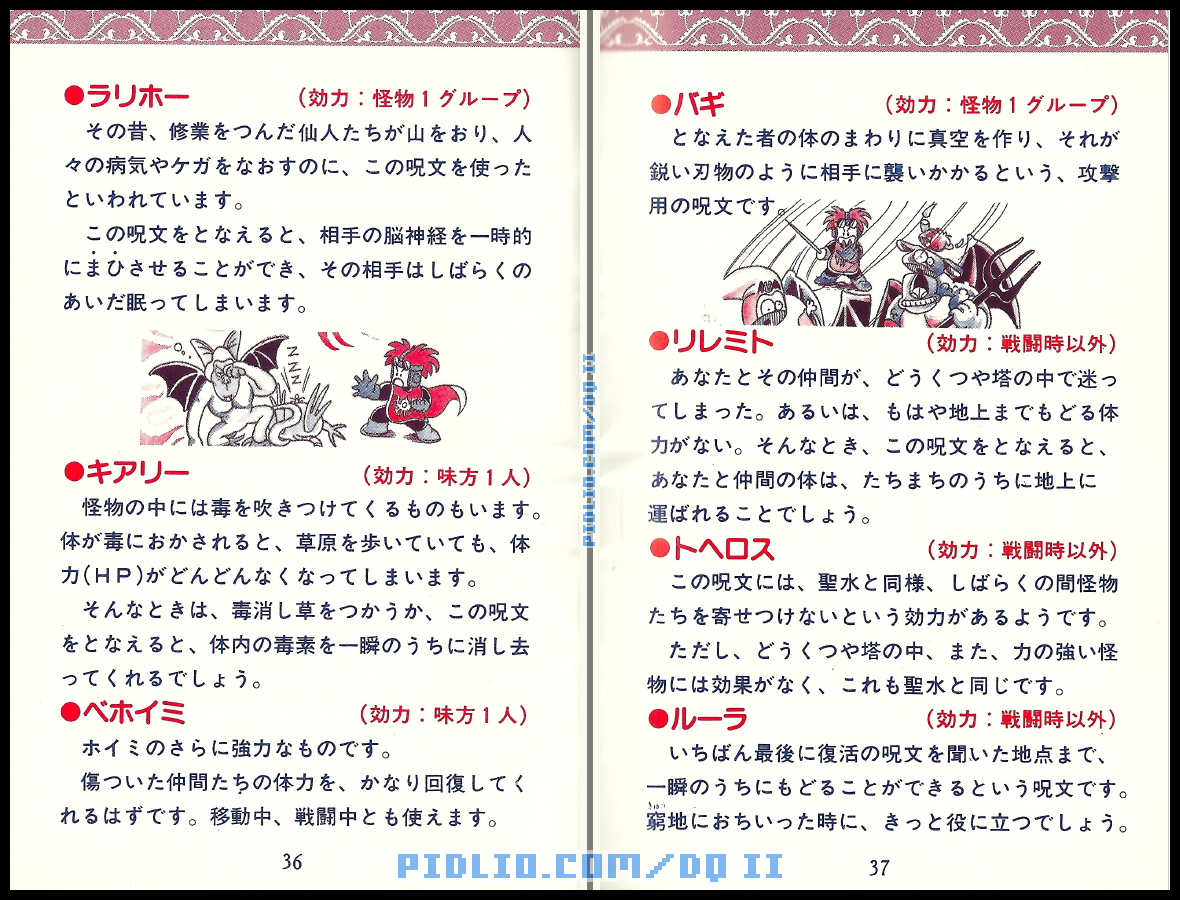 ●ラリホー　(効力：怪物1グループ)
その昔、修業をつんだ仙人たちが山をおり、人
々の病気やケガをなおすのに、この呪文を使った
といわれています。
この呪文をとなえると、相手の脳神経を一時的
にまひさせることができ、その相手はしばらくの
あいだ眠ってしまいます。
ZZZZ
●キアリー　(効力：味方1人)
怪物の中には毒を吹きつけてくるものもいます。
体が毒におかされると、草原を歩いていても、体
力(HP)がどんどんなくなってしまいます。
そんなときは、毒消し草をつかうか、この呪文
をとなえると、体内の毒素を一瞬のうちに消し去
ってくれるでしょう。
●ベホイミ　(効力：味方1人)
ホイミのさらに強力なものです。
傷ついた仲間たちの体力を、かなり回復してく
れるはずです。移動中、戦闘中とも使えます。
36
●バギ　(効力：怪物1グループ)
となえた者の体のまわりに真空を作り、それが
鋭い刃物のように相手に襲いかかるという、攻撃
用の呪文です。
●リレミト　(効力：戦闘時以外)
あなたとその仲間が、どうくつや塔の中で迷っ
てしまった。あるいは、もはや地上までもどる体
力がない。そんなとき、この呪文をとなえると、
あなたと仲間の体は、たちまちのうちに地上に
運ばれることでしょう。
●トヘロス　(効力：戦闘時以外)
この呪文には、聖水と同様、しばらくの間怪物
たちを寄せつけないという効力があるようです。
ただし、どうくつや塔の中、また、力の強い怪
物には効果がなく、これも聖水と同じです。
●ルーラ　(効力：戦闘時以外)
いちばん最後に復活の呪文を聞いた地点まで、
一瞬のうちにもどることができるという呪文です。
きゅう
窮地におちいった時に、きっと役に立つでしょう。
37
PIDLIO.COM/DQ II
PIDLIO.COM/DQ II